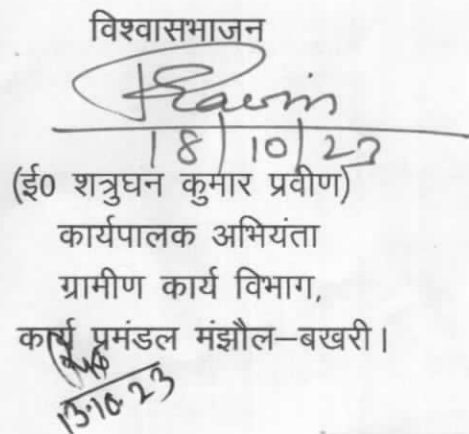 विश्वासभाजन
Pravin
18/10/23
(ई0 शत्रुघन कुमार प्रवीण)
कार्यपालक अभियंता
ग्रामीण कार्य विभाग,
कार्य प्रमंडल मंझौल–बखरी।
13.10.23